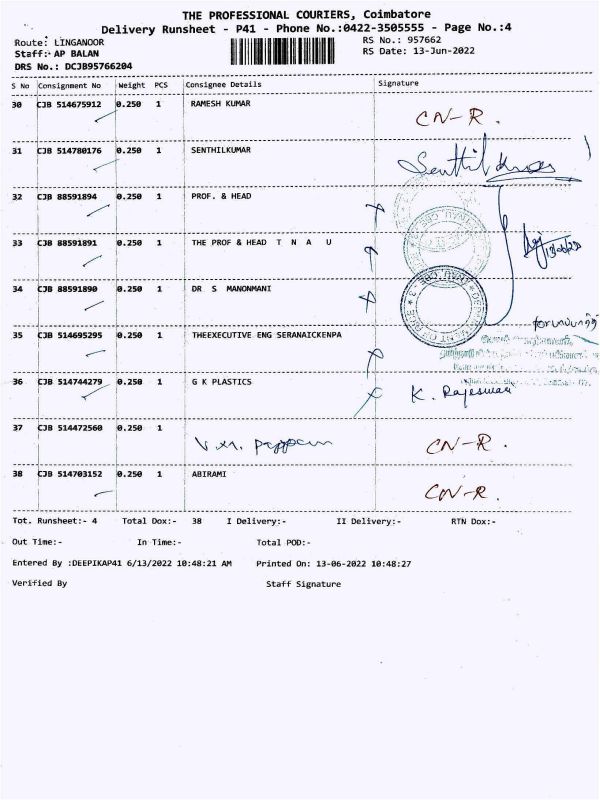 THE PROFESSIONAL COURIERS, Coimbatore
Delivery Runsheet - P41 - Phone No.:0422-3505555 - Page No.:4
Route: LINGANOOR RS No.: 957662
Staff: AP BALAN RS Date: 13-Jun-2022
DRS No.: DCJB95766204
S No Consignment No Weight PCS Consignee Details Signature
30 CJB 514675912 0.250 1 RAMESH KUMAR CN-R.
31 CJB 514780176 0.250 1 SENTHILKUMAR Senthil Kumar
32 CJB 88591894 0.250 1 PROF. & HEAD
33 CJB 88591891 0.250 1 THE PROF & HEAD T N A U
34 CJB 88591890 0.250 1 DR S MANONMANI
35 CJB 514695295 0.250 1 THEEXECUTIVE ENG SERANAICKENPA
36 CJB 514744279 0.250 1 G K PLASTICS K. Rajeswari
37 CJB 514472560 0.250 1 CN-R.
38 CJB 514703152 0.250 1 ABIRAMI CN-R.
Tot. Runsheet:- 4 Total Dox:- 38 I Delivery:- II Delivery:- RTN Dox:-
Out Time:- In Time:- Total POD:-
Entered By :DEEPIKAP41 6/13/2022 10:48:21 AM Printed On: 13-06-2022 10:48:27
Verified By Staff Signature